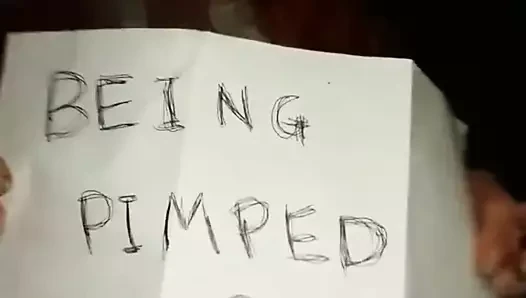 BEING
PIMPED